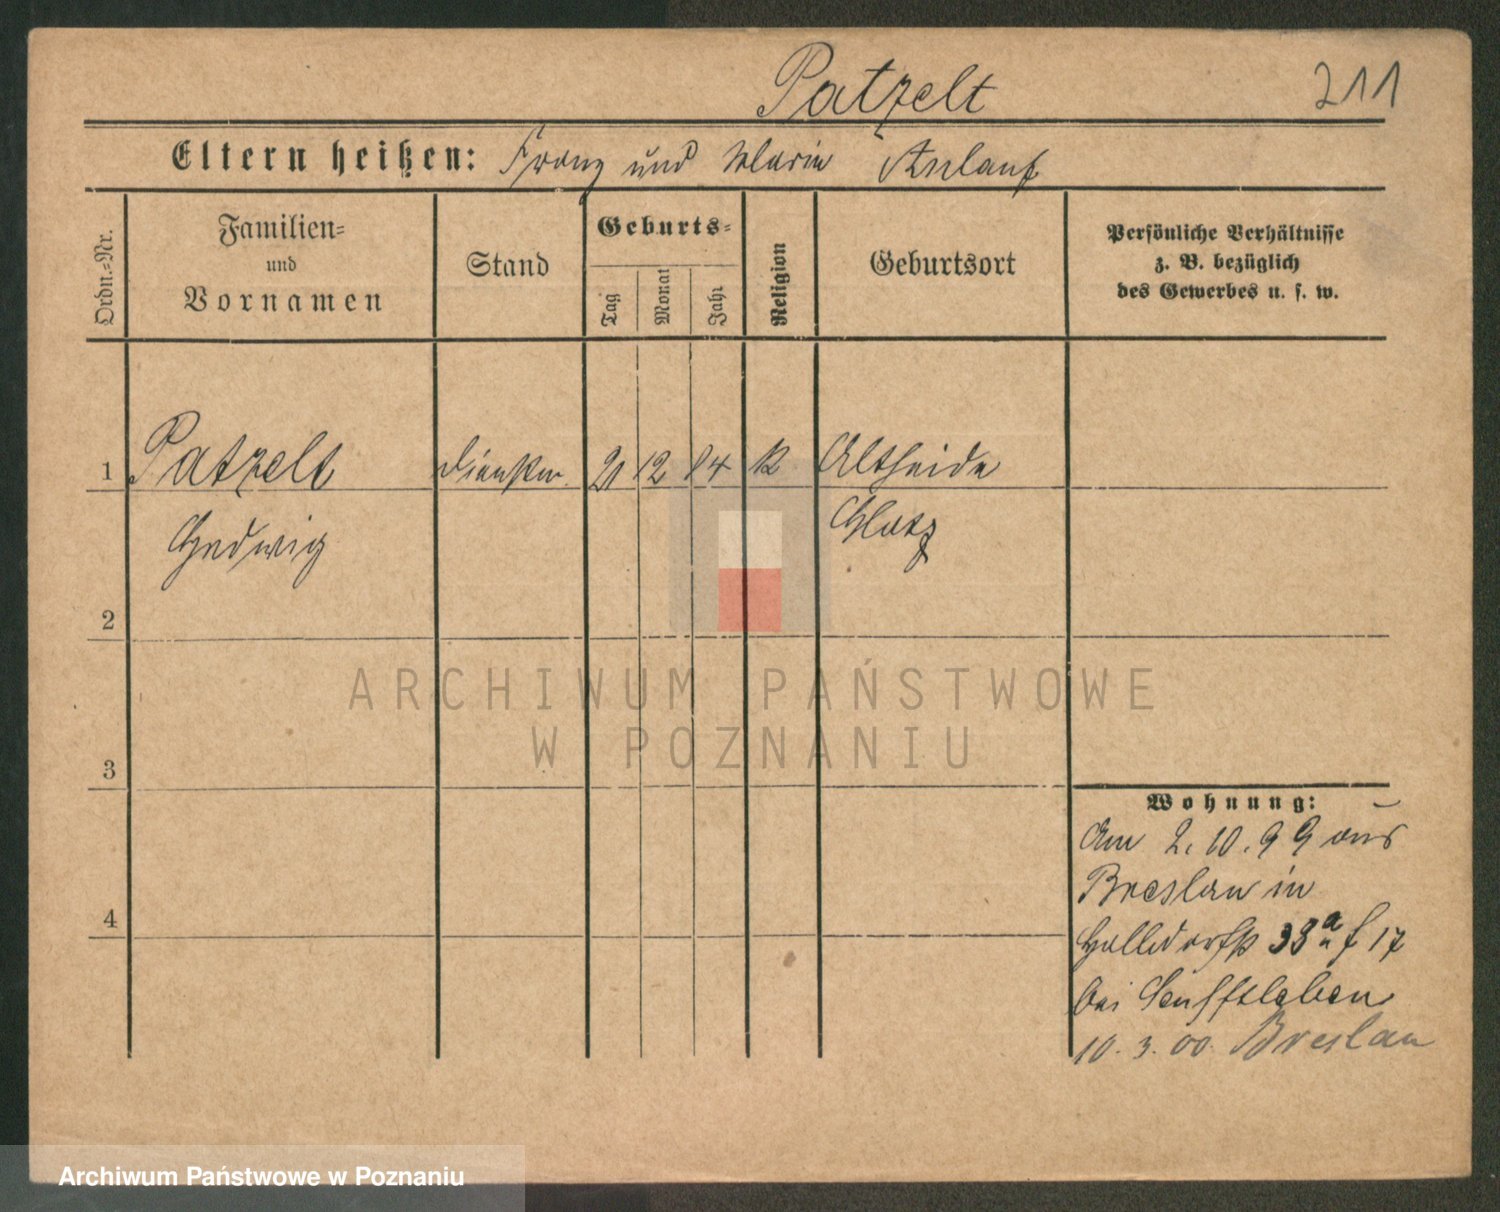 Patzelt
211
Eltern heißen: Franz und Maria Anlauf
Ordn.=Nr.
Familien=
und
Vornamen
Stand
Geburts=
Tag
Monat
Jahr
Religion
Geburtsort
Persönliche Verhältnisse
z. B. bezüglich
des Gewerbes u. s. w.
1 Patzelt Dienstm. 21 12 84 K Altheide
Hedwig
Glatz
2
3
4
Wohnung:
Am 2. 10. 99 aus
Breslau in
38 a 17
bei Senftleben
10. 3. 00. Breslau
ARCHIWUM PAŃSTWOWE
W POZNANIU
Archiwum Państwowe w Poznaniu